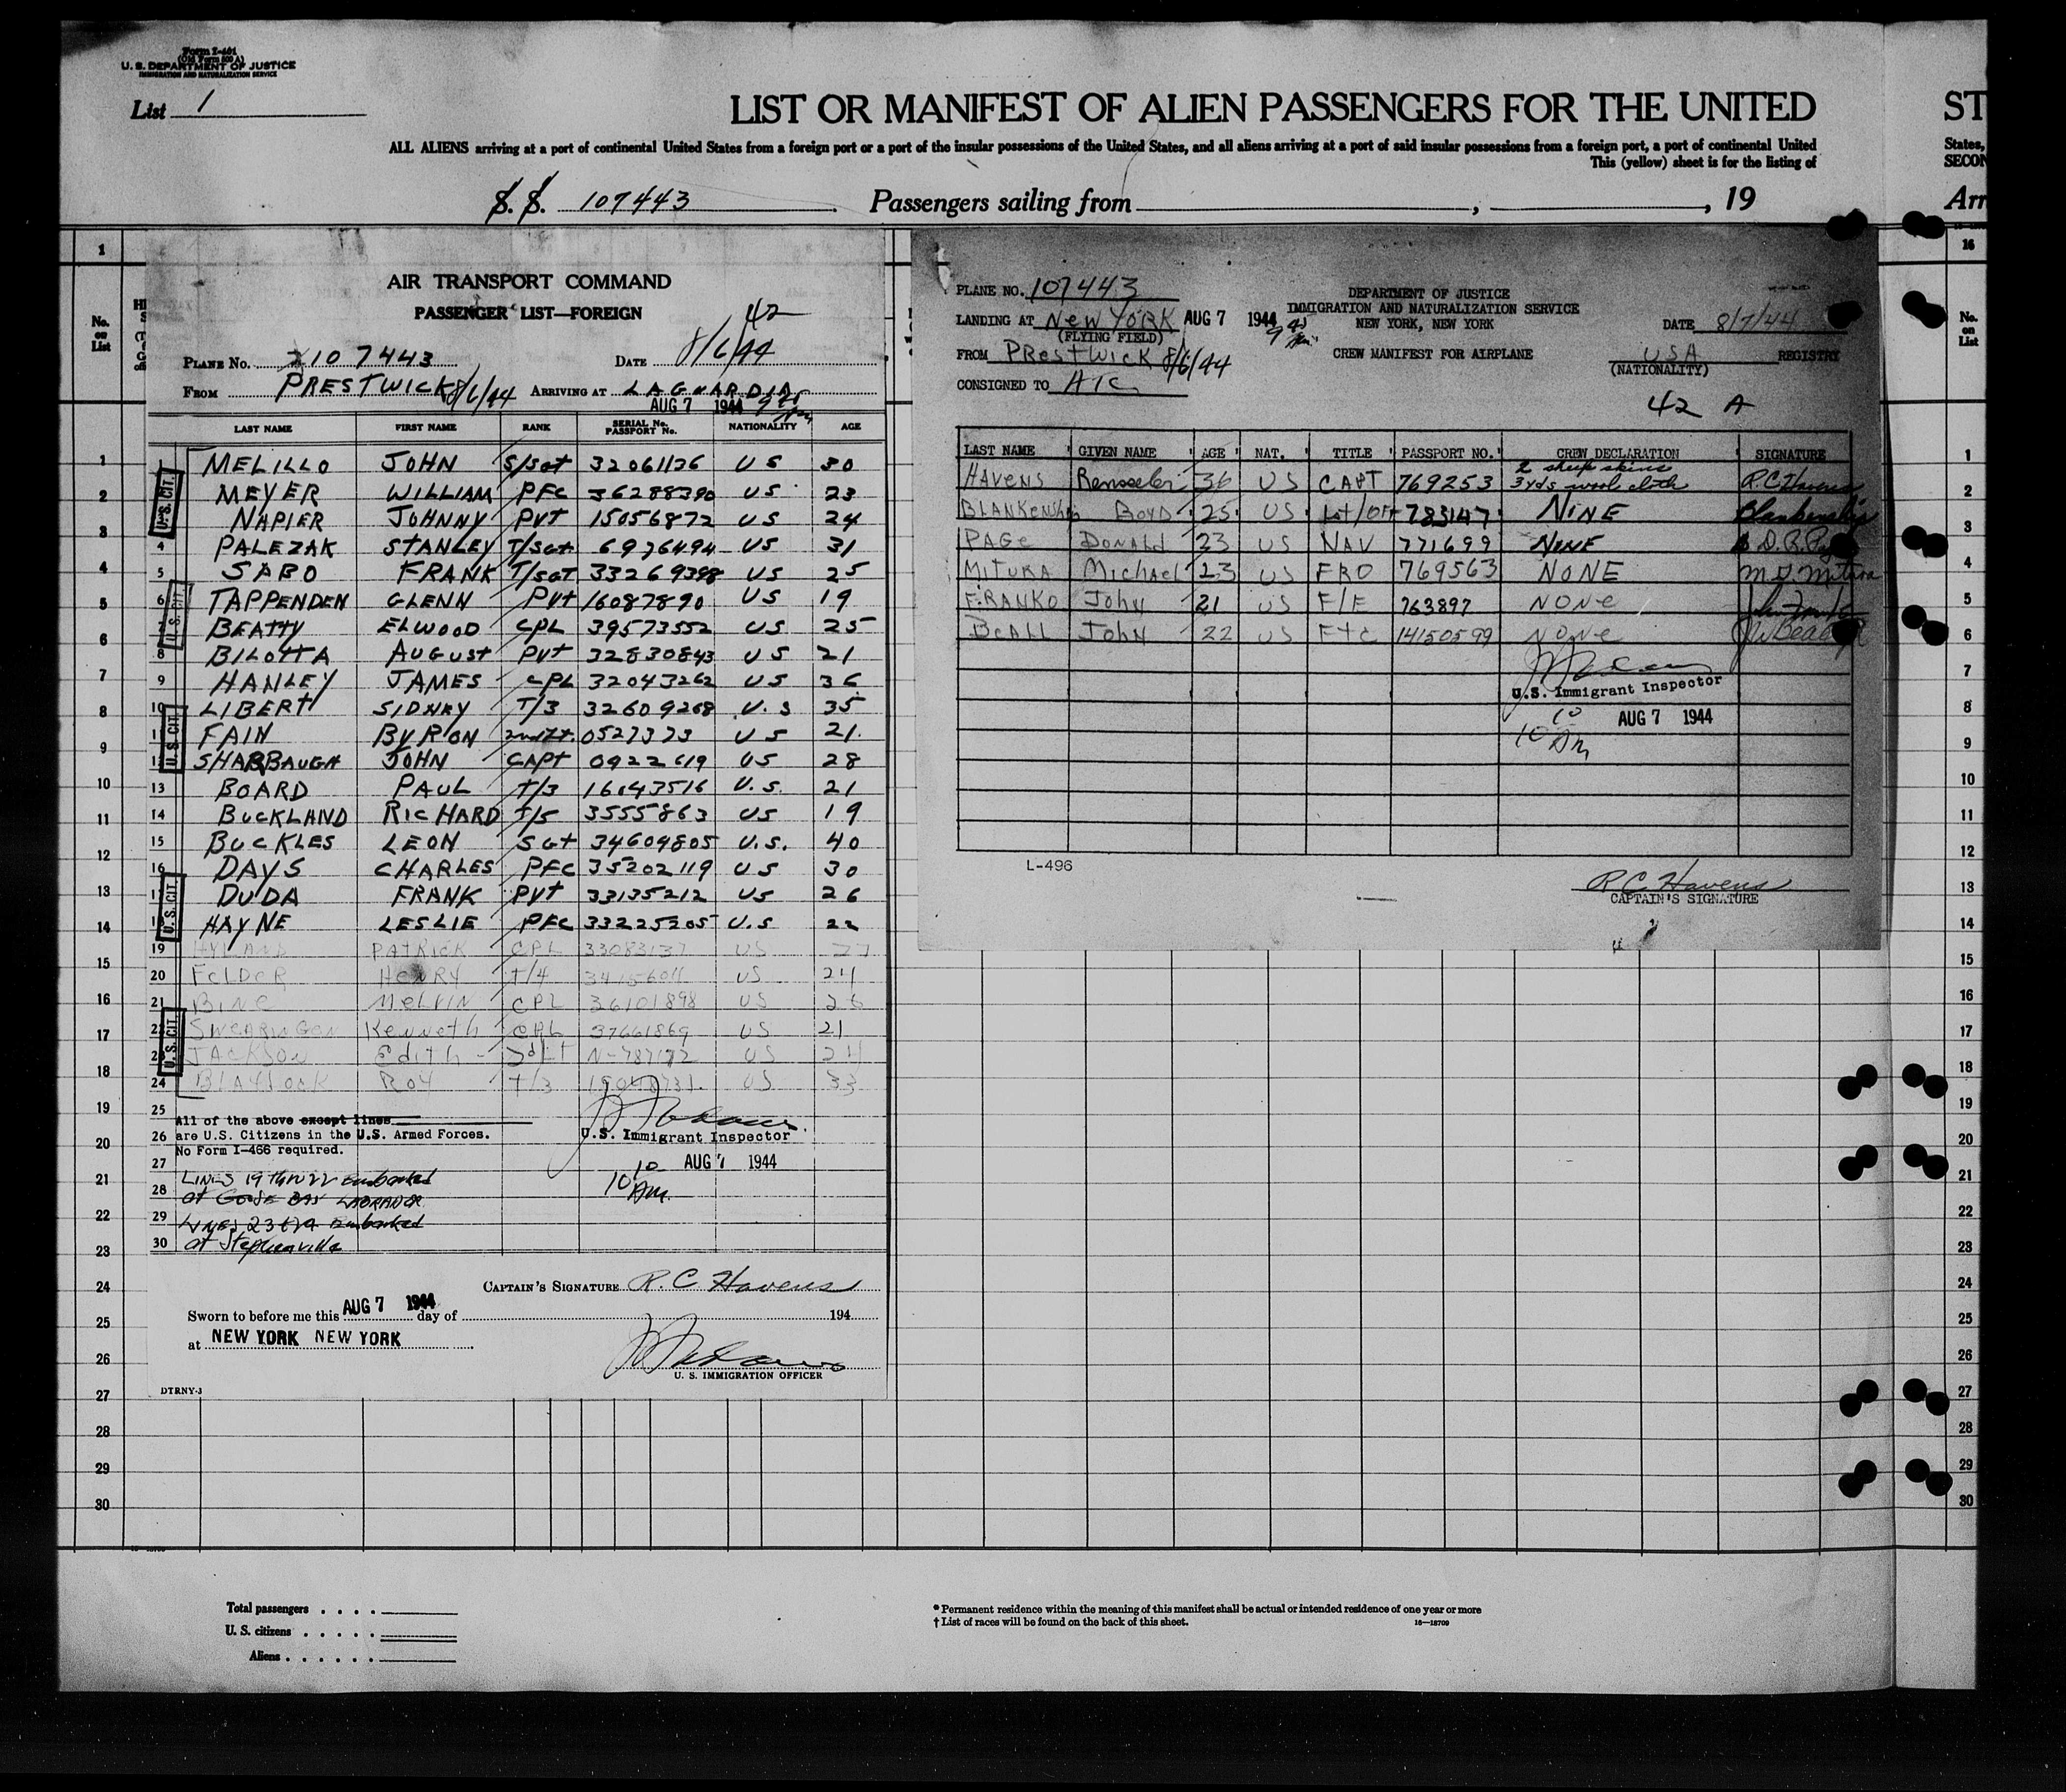 Form I-461
(Old Form 500 A)
U. S. DEPARTMENT OF JUSTICE
IMMIGRATION AND NATURALIZATION SERVICE
List 1
LIST OR MANIFEST OF ALIEN PASSENGERS FOR THE UNITED
ST
ALL ALIENS arriving at a port of continental United States from a foreign port or a port of the insular possessions of the United States, and all aliens arriving at a port of said insular possessions from a foreign port, a port of continental United
States,
This (yellow) sheet is for the listing of
SECON
S. S. 107443 Passengers sailing from , , 19
Arr
1
16
No. on List
No. on List
AIR TRANSPORT COMMAND
PASSENGER LIST—FOREIGN
42
PLANE No. 107443 DATE 8/6/44
FROM PRESTWICK 8/6/44 ARRIVING AT LAGUARDIA
AUG 7 1944 9 45 Am
LAST NAME FIRST NAME RANK SERIAL No. PASSPORT No. NATIONALITY AGE
1 MELILLO JOHN S/Sgt 32061136 US 30
2 MEYER WILLIAM PFC 36288390 US 23
3 NAPIER JOHNNY PVT 15056872 US 24
4 PALEZAK STANLEY T/Sgt 6976494 US 31
5 SABO FRANK T/SGT 33269398 US 25
6 TAPPENDEN GLENN Pvt 16087890 US 19
7 BEATTY ELWOOD CPL 39573552 US 25
8 BILOTTA AUGUST Pvt 32830843 US 21
9 HANLEY JAMES CPL 32043262 US 36
10 LIBERT SIDNEY T/3 32609268 U.S 35
11 FAIN BYRON 2nd Lt. 0527373 US 21
12 SHARBAUGH JOHN CAPT 0922619 US 28
13 BOARD PAUL T/3 16143516 U.S. 21
14 BUCKLAND RICHARD T/5 3555863 US 19
15 BUCKLES LEON SGT 34604805 U.S. 40
16 DAYS CHARLES PFC 35202119 US 30
17 DUDA FRANK PVT 33135212 US 26
18 HAYNE LESLIE PFC 33225205 U.S 22
19 HYLAND PATRICK CPL 33083137 US 27
20 FELDER HENRY T/4 34156011 US 24
21 BING MELVIN CPL 36101898 US 26
22 SWEARINGEN Kenneth CPL 37661869 US 21
23 JACKSON Edith 2d LT N-787172 US 24
24 BLAYLOCK ROY T/3 US 33
U.S. CIT.
U.S. CIT.
U.S. CIT.
U.S. CIT.
U.S. CIT.
25 All of the above except lines
26 are U.S. Citizens in the U.S. Armed Forces.
No Form I-466 required.
U.S. Immigrant Inspector
AUG 7 1944
10 10 Am.
27 LINES 19 thru 22 Embarked
28 at GOOSE BAY LABRADOR
29 LINES 23 & 24 Embarked
30 at Stephenville
CAPTAIN'S SIGNATURE R. C. Havens
Sworn to before me this AUG 7 1944 day of 194
at NEW YORK NEW YORK
U. S. IMMIGRATION OFFICER
DTRNY-3
PLANE NO. 107443
DEPARTMENT OF JUSTICE
IMMIGRATION AND NATURALIZATION SERVICE
NEW YORK, NEW YORK
LANDING AT NEW YORK AUG 7 1944 9 45 Am
(FLYING FIELD)
DATE 8/7/44
FROM PRESTWICK 8/6/44
CREW MANIFEST FOR AIRPLANE
USA REGISTRY
(NATIONALITY)
CONSIGNED TO ATC
42 A
LAST NAME GIVEN NAME AGE NAT. TITLE PASSPORT NO. CREW DECLARATION SIGNATURE
HAVENS Rensseler 36 US CAPT 769253 2 sheep skins 3 yds wool cloth R.C. Havens
BLANKENSHIP BOYD 25 US 1st/Off 783147 NINE Blankenship
PAGE DONALD 23 US NAV 771699 NONE D. R. Page
MITURA Michael 23 US FRO 769563 NONE M. J. Mitura
FRANKO John 21 US F/E 763897 NONE John Franko
BEALL John 22 US FTC 14150599 NONE
U.S. Immigrant Inspector
10 AUG 7 1944
10 Am
L-496
R C Havens
CAPTAIN'S SIGNATURE
Total passengers
U. S. citizens
Aliens
* Permanent residence within the meaning of this manifest shall be actual or intended residence of one year or more
† List of races will be found on the back of this sheet.
16—18709